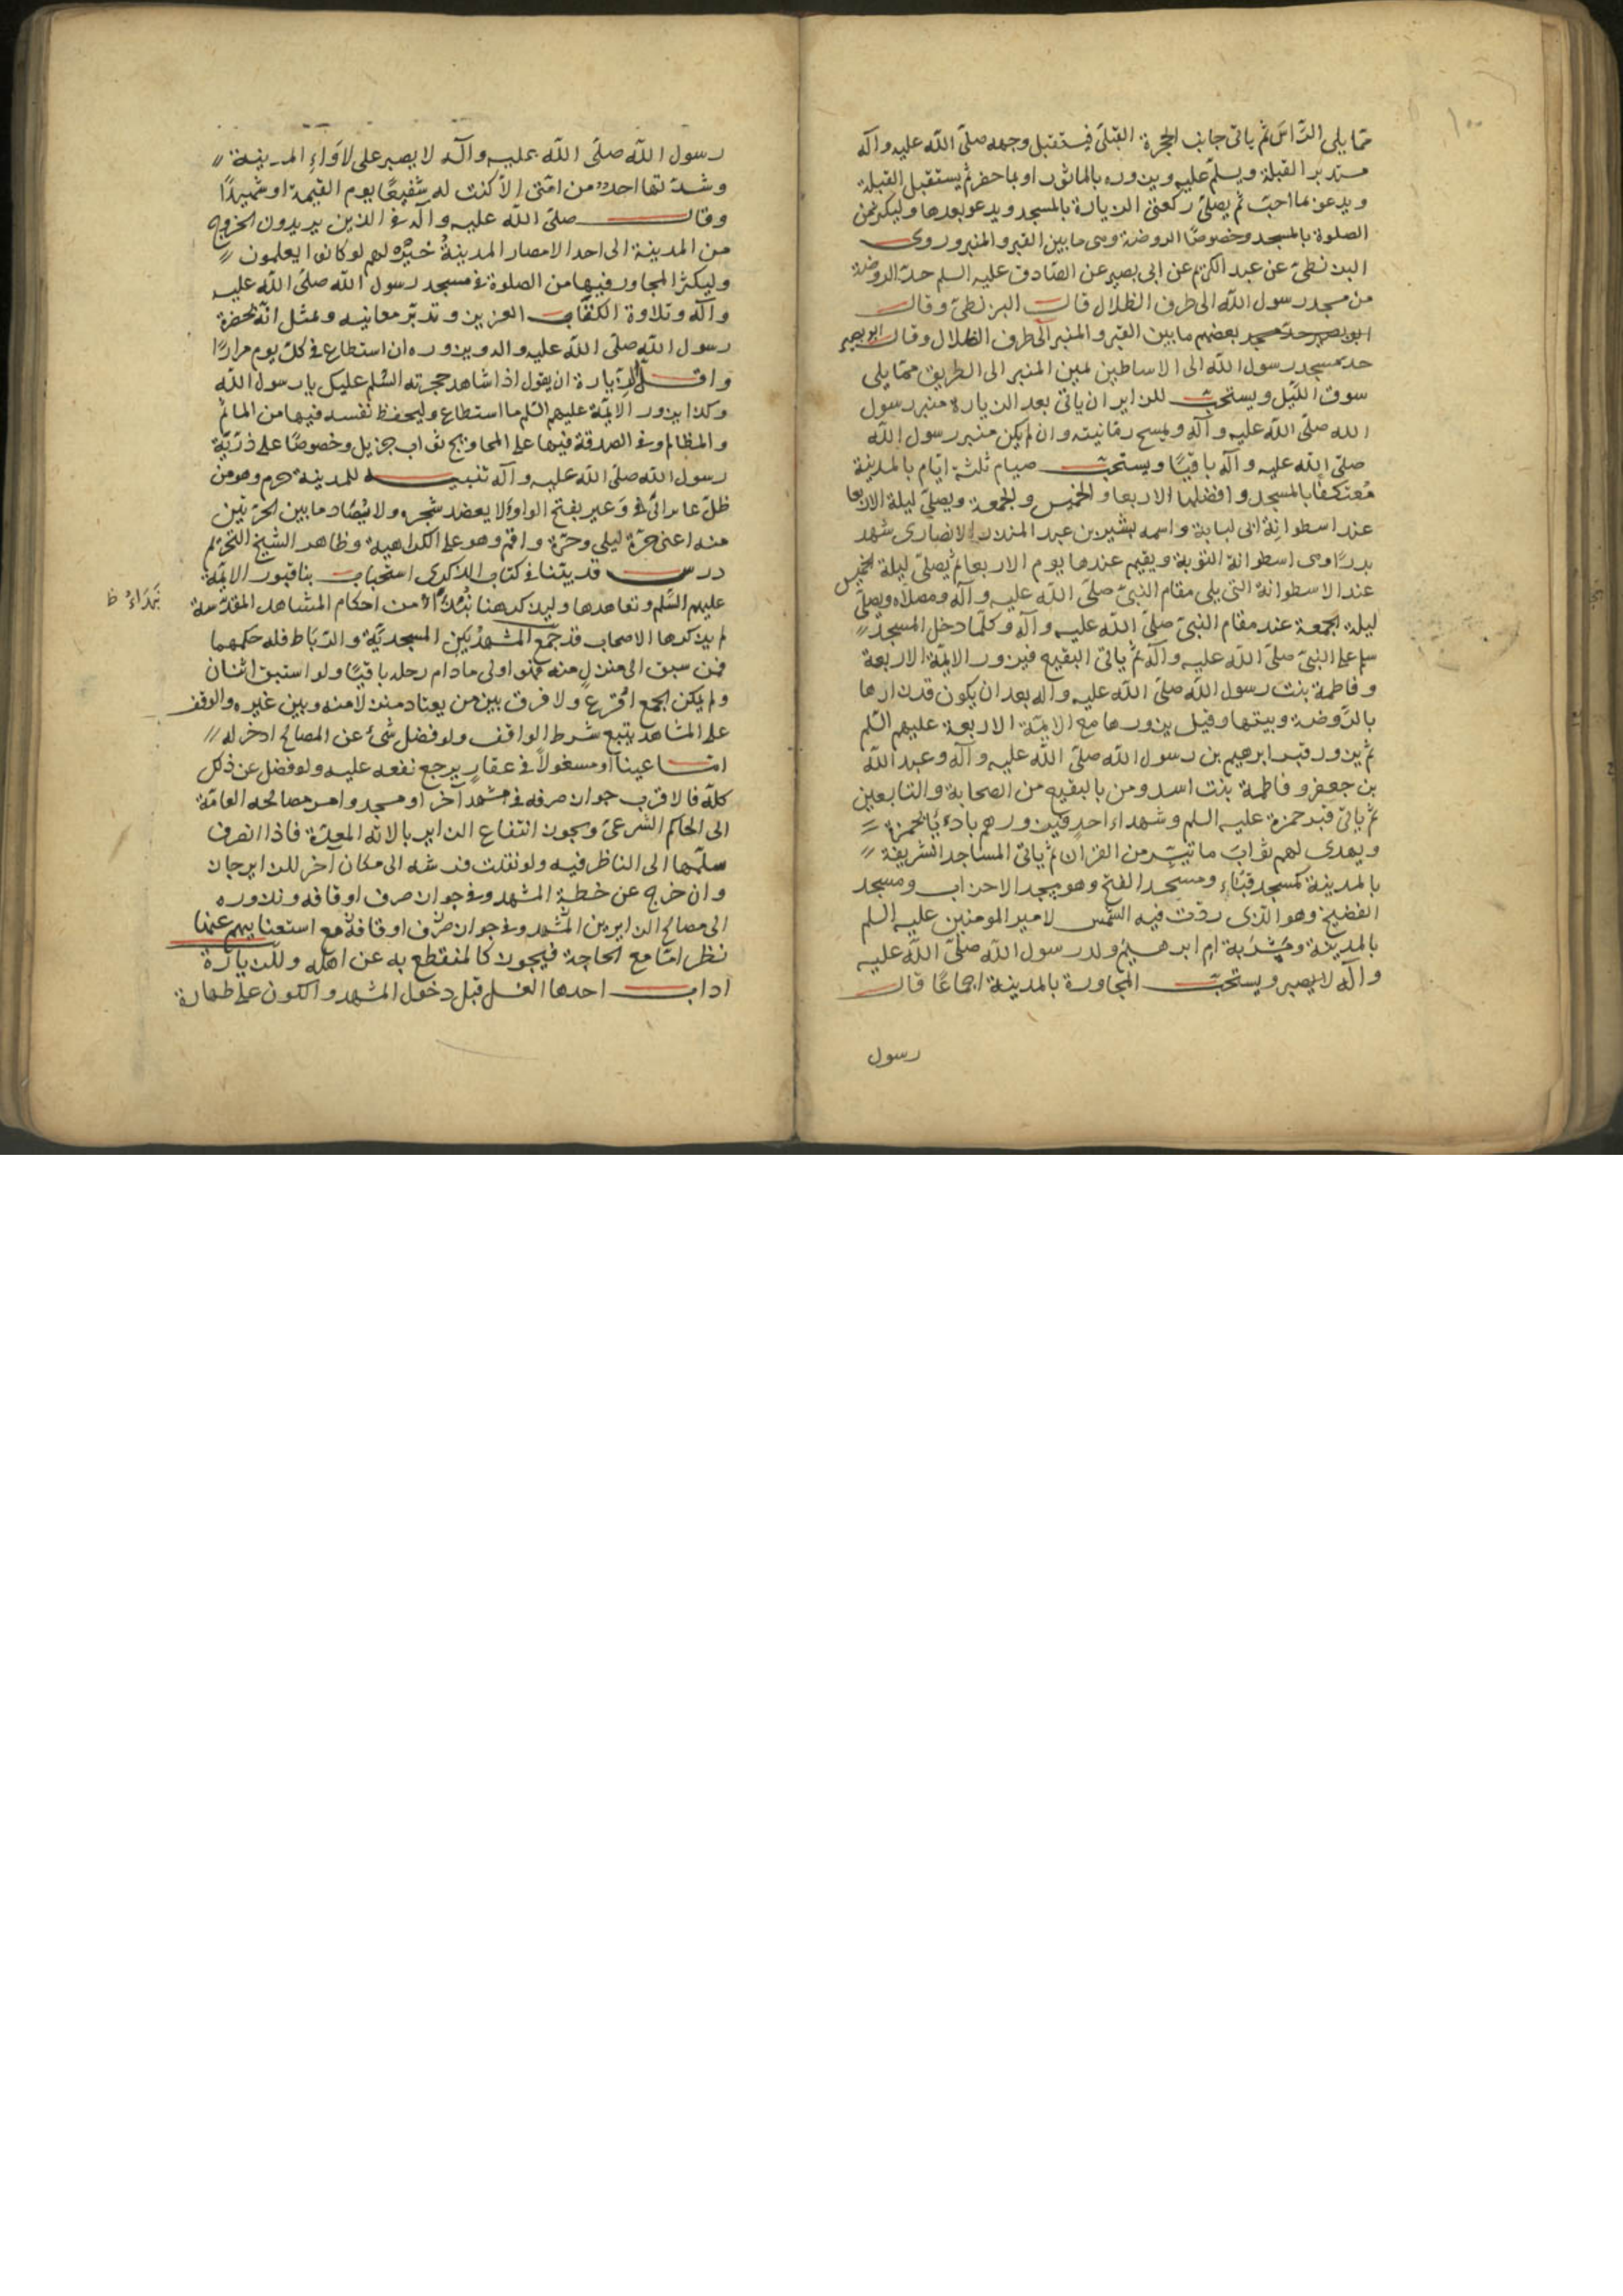 ١٠٠
مما يلى الرأس ثم ياتى جانب الحجرة القبلى فيستقبل وجهه صلى الله عليه وآله
مستدبر القبلة ويسلم عليه ويزوره بالماثور او بما حضر ثم يستقبل القبلة
ويدعو بما احب ثم يصلى ركعتى الزيارة بالمسجد ويدعو بعدها وليكثر من
الصلوة بالمسجد وخصوصا الروضة وهى ما بين القبر والمنبر وروى
البزنطى عن عبد الكريم عن ابى بصير عن الصادق عليه السلم حد الروضة
من مسجد رسول الله الى طرف الظلال قال البزنطى وقال
بعضهم ما بين القبر والمنبر الى طرف الظلال وقال ابو بصير
حد مسجد رسول الله الى الاساطين يمين المنبر الى الطريق مما يلى
سوق الليل ويستحب للزاير ان ياتى بعد الزيارة منبر رسول
الله صلى الله عليه وآله ويمسح رمانيته وان لم يكن منبر رسول الله
صلى الله عليه وآله باقيا ويستحب صيام ثلثة ايام بالمدينة
معتكفا بالمسجد وافضلها الاربعا والخميس والجمعة ويصلى ليلة الاربعا
عند اسطوانة ابى لبابة واسمه بشير بن عبد المنذر الانصارى شهد
بدرا وهى اسطوانة التوبة ويقيم عندها يوم الاربعا ثم يصلى ليلة الخميس
عند الاسطوانة التى يلى مقام النبى صلى الله عليه وآله ومصلاه ويصلى
ليلة الجمعة عند مقام النبى صلى الله عليه وآله وكلما دخل المسجد
سلم على النبى صلى الله عليه وآله ثم ياتى البقيع فيزور الايمة الاربعة
وفاطمة بنت رسول الله صلى الله عليه وآله بعد ان يكون قد زارها
بالروضة وبيتها وقيل يزورها مع الايمة الاربعة عليهم السلم
ثم يزور قبر ابرهيم بن رسول الله صلى الله عليه وآله وعبد الله
بن جعفر وفاطمة بنت اسد ومن بالبقيع من الصحابة والتابعين
ثم ياتى قبر حمزة عليه السلم وشهداء احد فيزورهم باديا بحمزة
ويهدى لهم ثواب ما تيسر من القران ثم ياتى المساجد الشريفة
بالمدينة كمسجد قباء ومسجد الفتح وهو مسجد الاحزاب ومسجد
الفضيخ وهو الذى ردت فيه الشمس لامير المومنين عليه السلم
بالمدينة ومشربة ام ابرهيم ولد رسول الله صلى الله عليه
وآله ويستحب المجاورة بالمدينة اجماعا قال
رسول
رسول الله صلى الله عليه وآله لا يصبر على لاواء المدينة
وشدتها احد من امتى الا كنت له شفيعا يوم القيمة او شهيدا
وقال صلى الله عليه وآله فى الذين يريدون الخروج
من المدينة الى احد الامصار المدينة خير لهم لو كانوا يعلمون
وليكثر المجاور فيها من الصلوة فى مسجد رسول الله صلى الله عليه
وآله وتلاوة الكتاب العزيز وتدبر معانيه ويمثل انه بحضرة
رسول الله صلى الله عليه واله ويزوره ان استطاع فى كل يوم مرارا
واقل الزيارة ان يقول اذا شاهد حجرته السلم عليك يا رسول الله
وكذا يزور الايمة عليهم السلم ما استطاع وليحفظ نفسه فيها من المآثم
والمظالم وفى الصدقة فيها على المحاويج ثواب جزيل وخصوصا على ذرية
رسول الله صلى الله عليه وآله تنبيه للمدينة حرم وهو من
ظل عاير الى وعير بفتح الواو لا يعضد شجره ولا يصاد ما بين الحرتين
منه اعنى حرة ليلى وحرة واقم وهو على الكراهية وظاهر الشيخ التحريم
درس قد بينا فى كتاب الذكرى استحباب بنا قبور الايمة
عليهم السلم وتعاهدها وليذكر هنا من احكام المشاهد المقدسة
لم يذكرها الاصحاب قد جمع المشهد بين المسجدية والرباط فله حكمهما
فمن سبق الى منزل منه فهو اولى مادام رحله باقيا ولو استبق اثنان
ولم يكن الجمع اقرع ولا فرق بين من يعتاد منزلا منه وبين غيره والوقف
على المشاهد يتبع شرط الواقف ولو فضل شئ عن المصالح ادخر له
اما عينا او مشغولا فى عقار يرجع نفعه عليه ولو فضل عن ذلك
كله فالاقرب جواز صرفه فى مشهد آخر او مسجد وامر مصالحه العامة
الى الحاكم الشرعى ويجوز انتفاع الزاير بالاته المعدة فاذا انصرف
سلمها الى الناظر فيه ولو نقلت فرشه الى مكان آخر للزاير جاز
وان خرج عن خطة المشهد وفى جواز صرف اوقافه ونذوره
الى مصالح الزايرين المشهد وفى جواز صرف اوقافه مع استغنايهم عنها
نظر اما مع الحاجة فيجوز كالمنقطع به عن اهله وللزيارة
اداب احدها الغسل قبل دخول المشهد والكون على طهارة